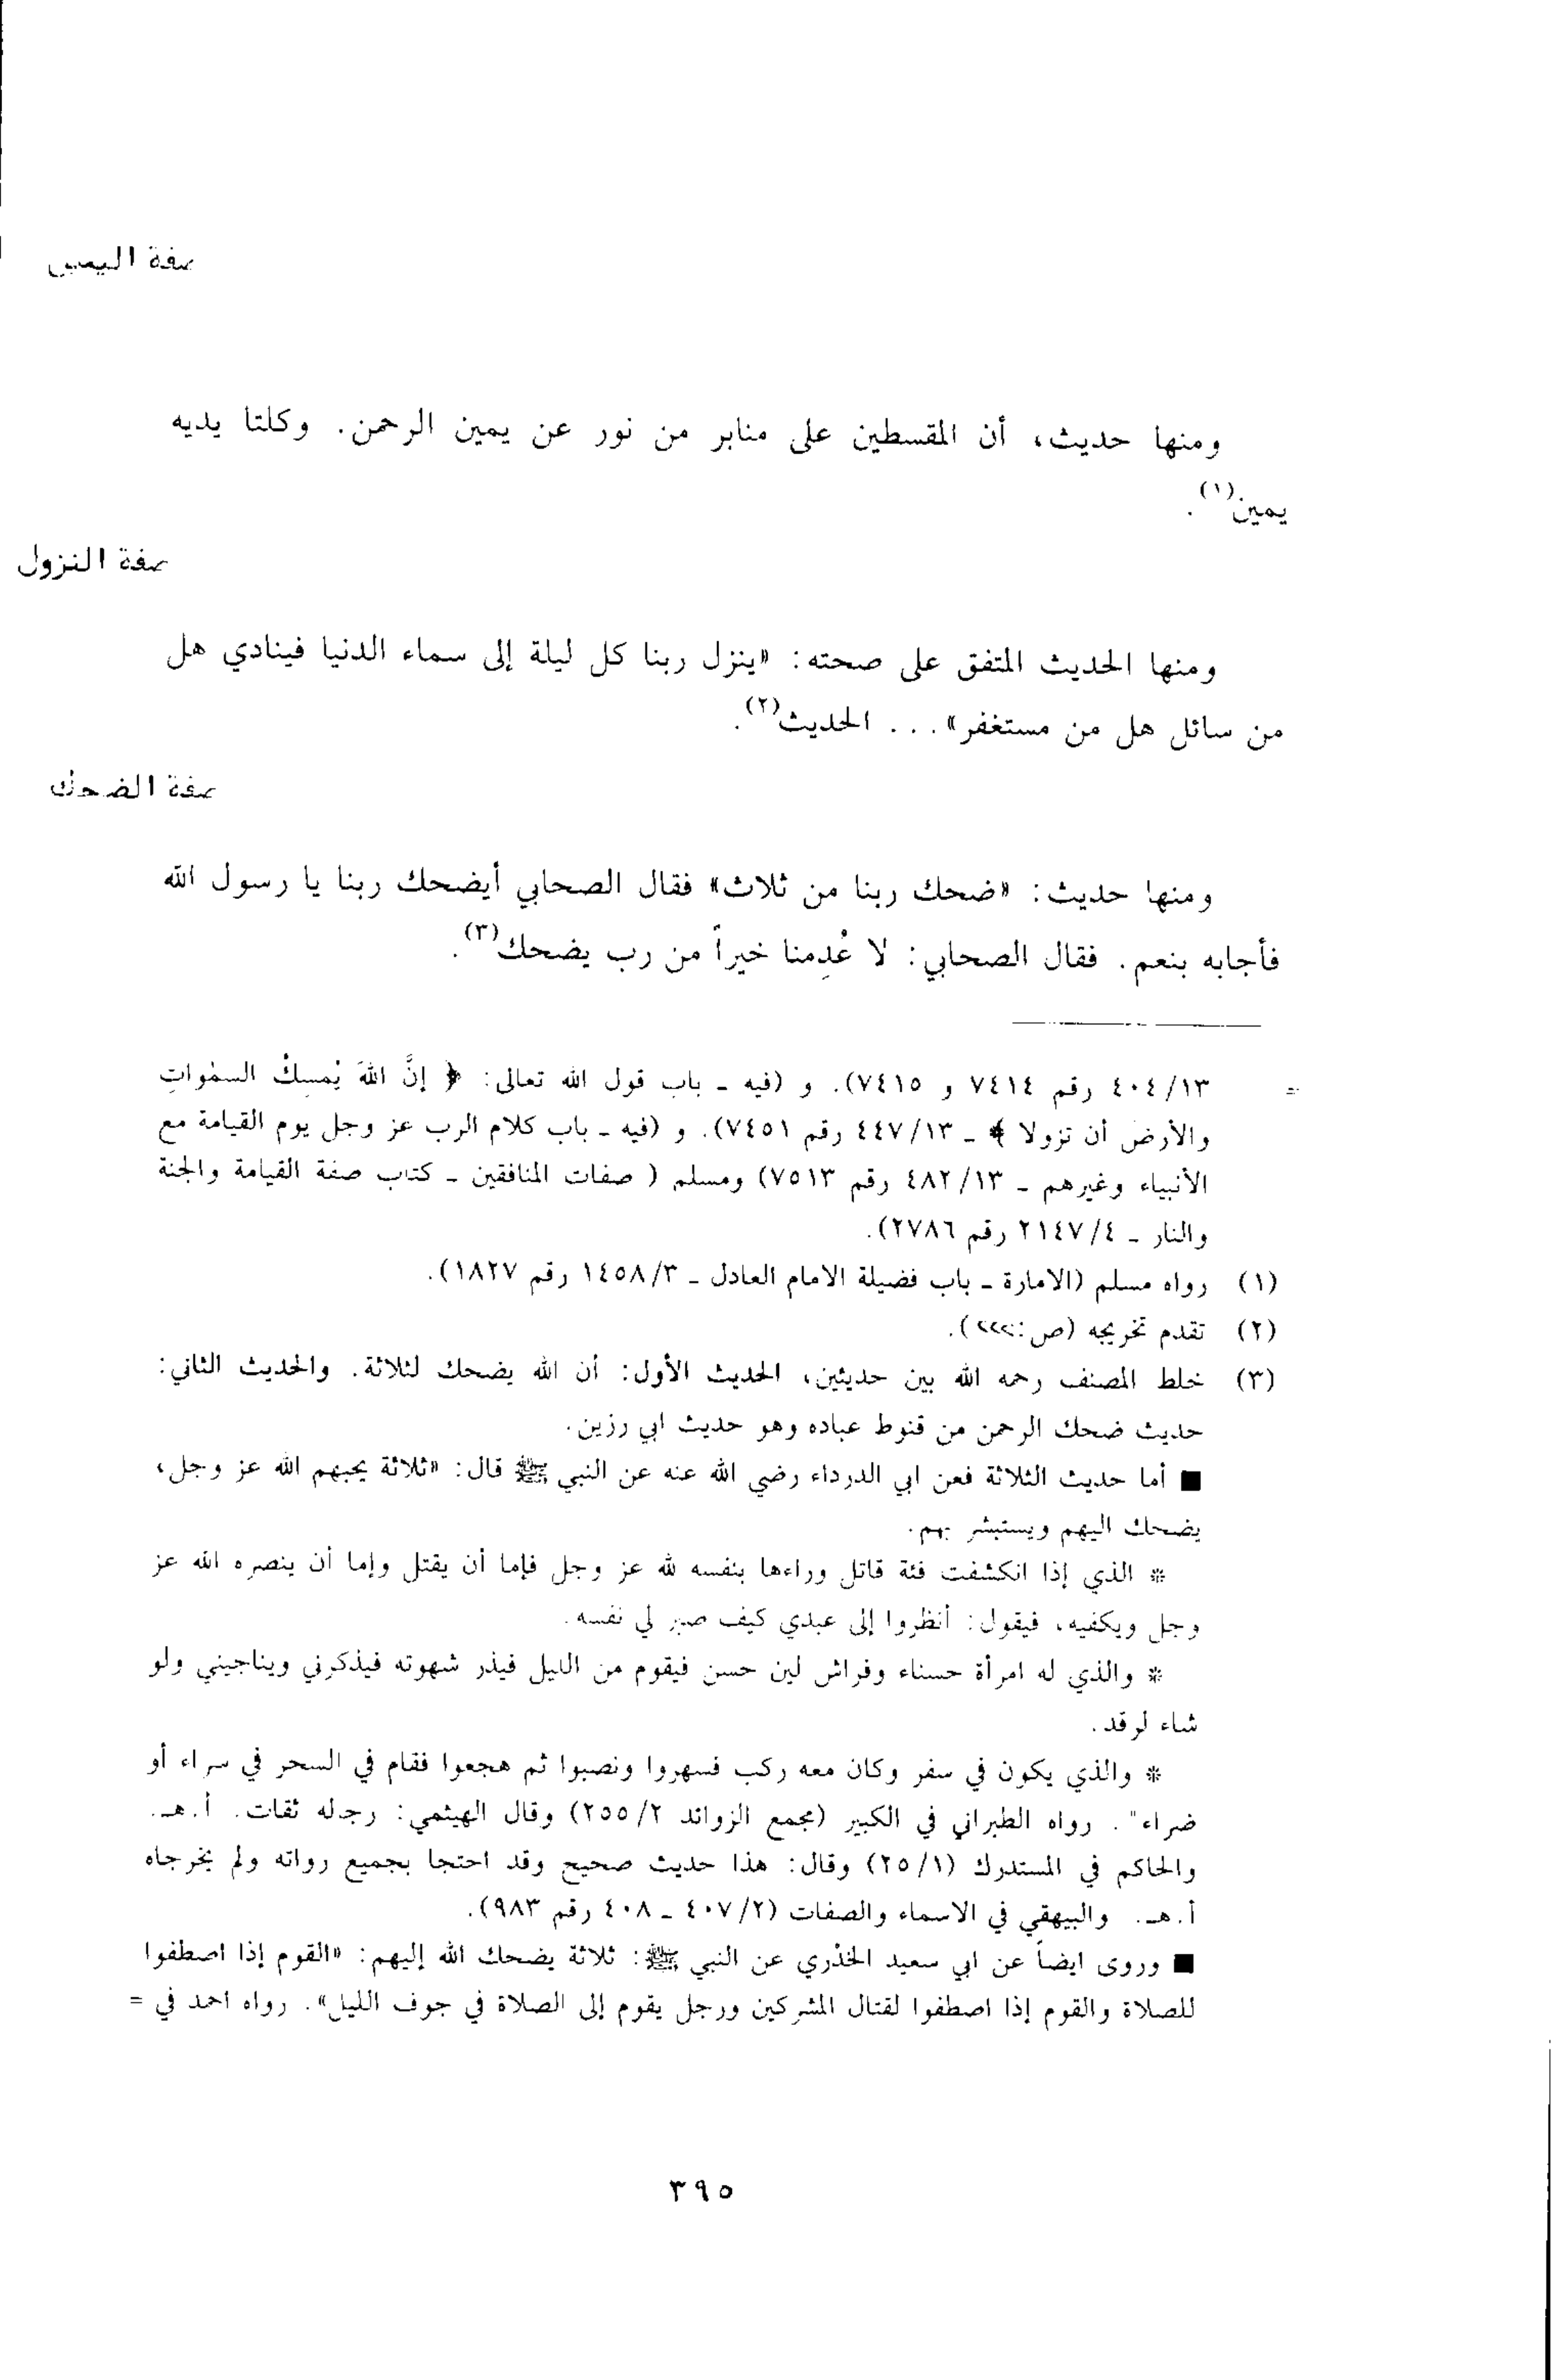 صفة اليمين
ومنها حديث، أن المقسطين على منابر من نور عن يمين الرحمن. وكلتا يديه
يمين(١).
صفة النزول
ومنها الحديث المتفق على صحته: «ينزل ربنا كل ليلة إلى سماء الدنيا فينادي هل
من سائل هل من مستغفر»... الحديث(٢).
صفة الضحك
ومنها حديث: «ضحك ربنا من ثلاث» فقال الصحابي أيضحك ربنا يا رسول الله
فأجابه بنعم. فقال الصحابي: لا عُدِمنا خيراً من رب يضحك(٣).
= ٤٠٤/١٣ رقم ٧٤١٤ و ٧٤١٥). و (فيه - باب قول الله تعالى: ﴿ إنَّ اللهَ يُمسِكُ السمٰواتِ
والأرضَ أن تزولا ﴾ - ٤٤٧/١٣ رقم ٧٤٥١). و (فيه - باب كلام الرب عز وجل يوم القيامة مع
الأنبياء وغيرهم - ٤٨٢/١٣ رقم ٧٥١٣) ومسلم ( صفات المنافقين - كتاب صفة القيامة والجنة
والنار - ٢١٤٧/٤ رقم ٢٧٨٦).
(١) رواه مسلم (الامارة - باب فضيلة الامام العادل - ١٤٥٨/٣ رقم ١٨٢٧).
(٢) تقدم تخريجه (ص:
(٣) خلط المصنف رحمه الله بين حديثين، الحديث الأول: أن الله يضحك لثلاثة. والحديث الثاني:
حديث ضحك الرحمن من قنوط عباده وهو حديث ابي رزين.
■ أما حديث الثلاثة فعن ابي الدرداء رضي الله عنه عن النبي ﷺ قال: «ثلاثة يحبهم الله عز وجل،
يضحك اليهم ويستبشر بهم.
* الذي إذا انكشفت فئة قاتل وراءها بنفسه لله عز وجل فإما أن يقتل وإما أن ينصره الله عز
وجل ويكفيه، فيقول: أنظروا إلى عبدي كيف صبر لي نفسه.
* والذي له امرأة حسناء وفراش لين حسن فيقوم من الليل فيذر شهوته فيذكرني ويناجيني ولو
شاء لرقد.
* والذي يكون في سفر وكان معه ركب فسهروا ونصبوا ثم هجعوا فقام في السحر في سراء أو
ضراء". رواه الطبراني في الكبير (مجمع الزوائد ٢٥٥/٢) وقال الهيثمي: رجاله ثقات. أ.هـ.
والحاكم في المستدرك (٢٥/١) وقال: هذا حديث صحيح وقد احتجا بجميع رواته ولم يخرجاه
أ.هـ. والبيهقي في الاسماء والصفات (٤٠٧/٢ - ٤٠٨ رقم ٩٨٣).
■ وروى ايضاً عن ابي سعيد الخُدْري عن النبي ﷺ: ثلاثة يضحك الله إليهم: «القوم إذا اصطفوا
للصلاة والقوم إذا اصطفوا لقتال المشركين ورجل يقوم إلى الصلاة في جوف الليل». رواه احمد في =
٣٩٥